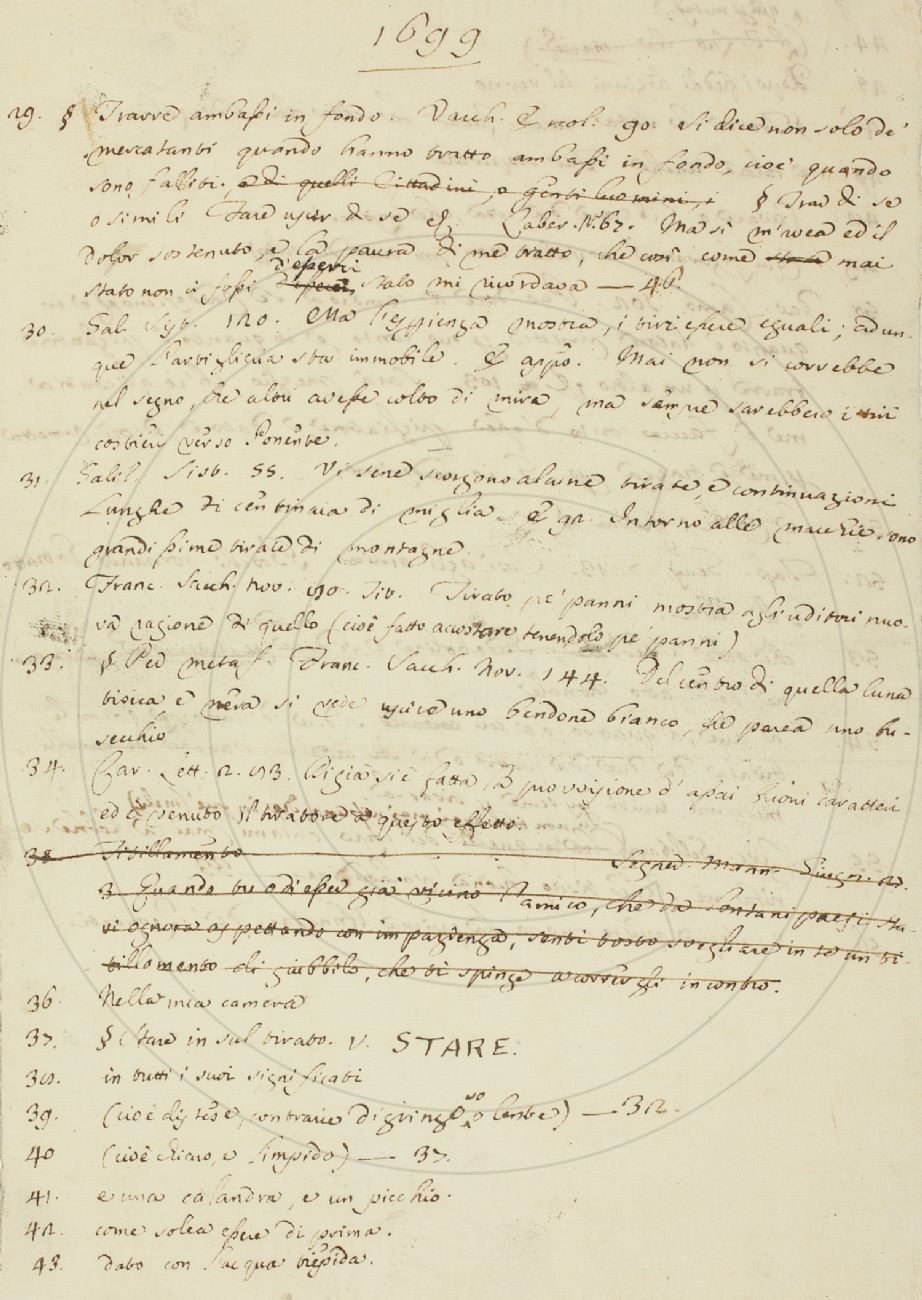 1699
29. § Trarre ambassi in fondo. Sacch. & nol. 90. Si dice non solo de'
mercatanti quando hanno tratto ambassi in fondo, cioè quando
sono falliti. e di quelli Cittadini, o gentiluomini, § Trar di se
o simili Fare uscir di se &. Laber. N. 67. Ma si m'avea ed il
dolor sostenuto, e la paura di me tratto, che così come mai
d'esservi
stato non ci fossi stato mi ricordava — 46
30. Gal. Sist. 120. Ma l'esperienza mostra, i tiri essere eguali; adun-
que l'artiglieria sta immobile. & appo. Mai non si correbbe
nel segno, che altri avesse colto di mira, ma sempre sarebbero i tiri
costieri verso Ponente.
31. Galil. Sist. 55. Vi sene scorgono alcune tirate, e continuazioni
lunghe di centinaia di miglia. & 92. Intorno alle macchie sono
grandissime tirate di montagne
32. Franc. Sacch. nov. tit. Tirato pe' panni mostra agli uditori nuo-
va ragione di quello (cioè fatto accostare tenendolo pe' panni)
33. § Per metaf. Franc. Sacch. Nov. 144. Del centro di quella luna
tioica e nera si vede uscire uno bendone bianco, che parea uno bu-
secchio
34. Car. Lett. 2. 93. Di già si è fatta provvisione d'assai buoni caratteri
ed è venuto il tiratore a questo effetto.
35. Titillamento Segner. Mann. Giugn.
3 Quando tu odi esser già vicino l'amico, che da lontani paesi sta-
vi ognora aspettando con impazienza, senti tosto svegliare in te un ti-
tillamento di giubbilo, che ti spinge a corrergli incontro.
36. Nella mia camera
37. § Stare in sul tirato. V. STARE.
38. in tutti i suoi significati
39. (cioè distese, contrario di grinze, o lente) — 32.
40 (cioè chiaro, e limpido) — 37.
41. e una calandra, e un picchio.
42. come solea essere di prima.
43. dato con l'acqua tiepida.